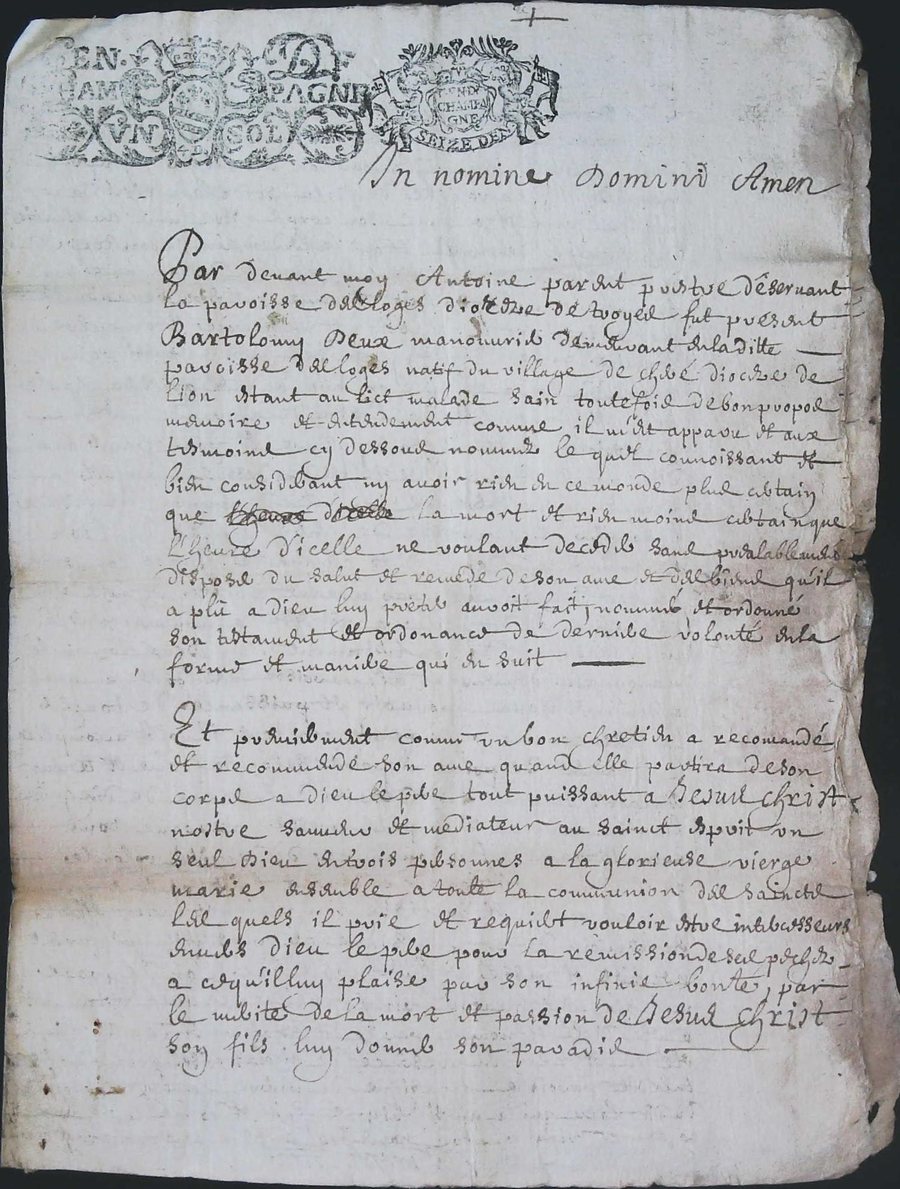 GEN. D
CHAMPAGNE
VN SOL
GEND
CHAMPA
GNE
SEIZE DEN
In nomine Domini Amen
Par devant moy Antoine parent prestre déservant
la paroisse des loges diocèze de troyes fut présent
Bartolomy Deux manouvrié demeurant en la ditte
paroisse des loges natif du village de diocèze de
Lion estant au lict malade sain toutefois de bon propos
mémoire et entendement comme il m'est apparu et aux
tesmoins cy dessous nommez le quel connoissant et
bien considérant ny avoir rien en ce monde plus certain
que la mort et rien moins certain que
l'heure d'icelle ne voulant decéder sans préalablement
disposé du salut et remède de son ame et des biens qu'il
a plû a dieu luy prester avoit fait, nommé et ordonné
son testament et ordonance de dernière volonté en la
forme et manière qui en suit
Et premièrement comme un bon chretien a recomandé
et recommende son ame quand elle partira de son
corps a Dieu le père tout puissant a Jesus Christ
nostre sauveur et médiateur au sainct esprit un
seul Dieu en trois personnes a la glorieuse vierge
marie ensemble a toute la communion des saincts
les quels il prie et requiert vouloir estre intercesseurs
envers Dieu le père pour la rémission de ses péchez
a ce qu'il luy plaise par son infinie bonté, par
le mérite de la mort et passion de Jesus Christ
son fils luy donner son paradis